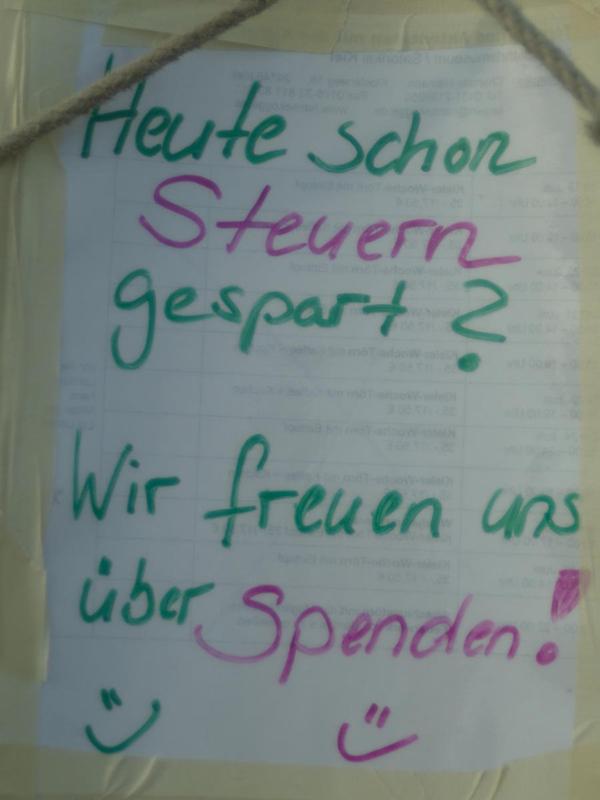 Heute schon
Steuern
gespart?
Wir freuen uns
über Spenden!